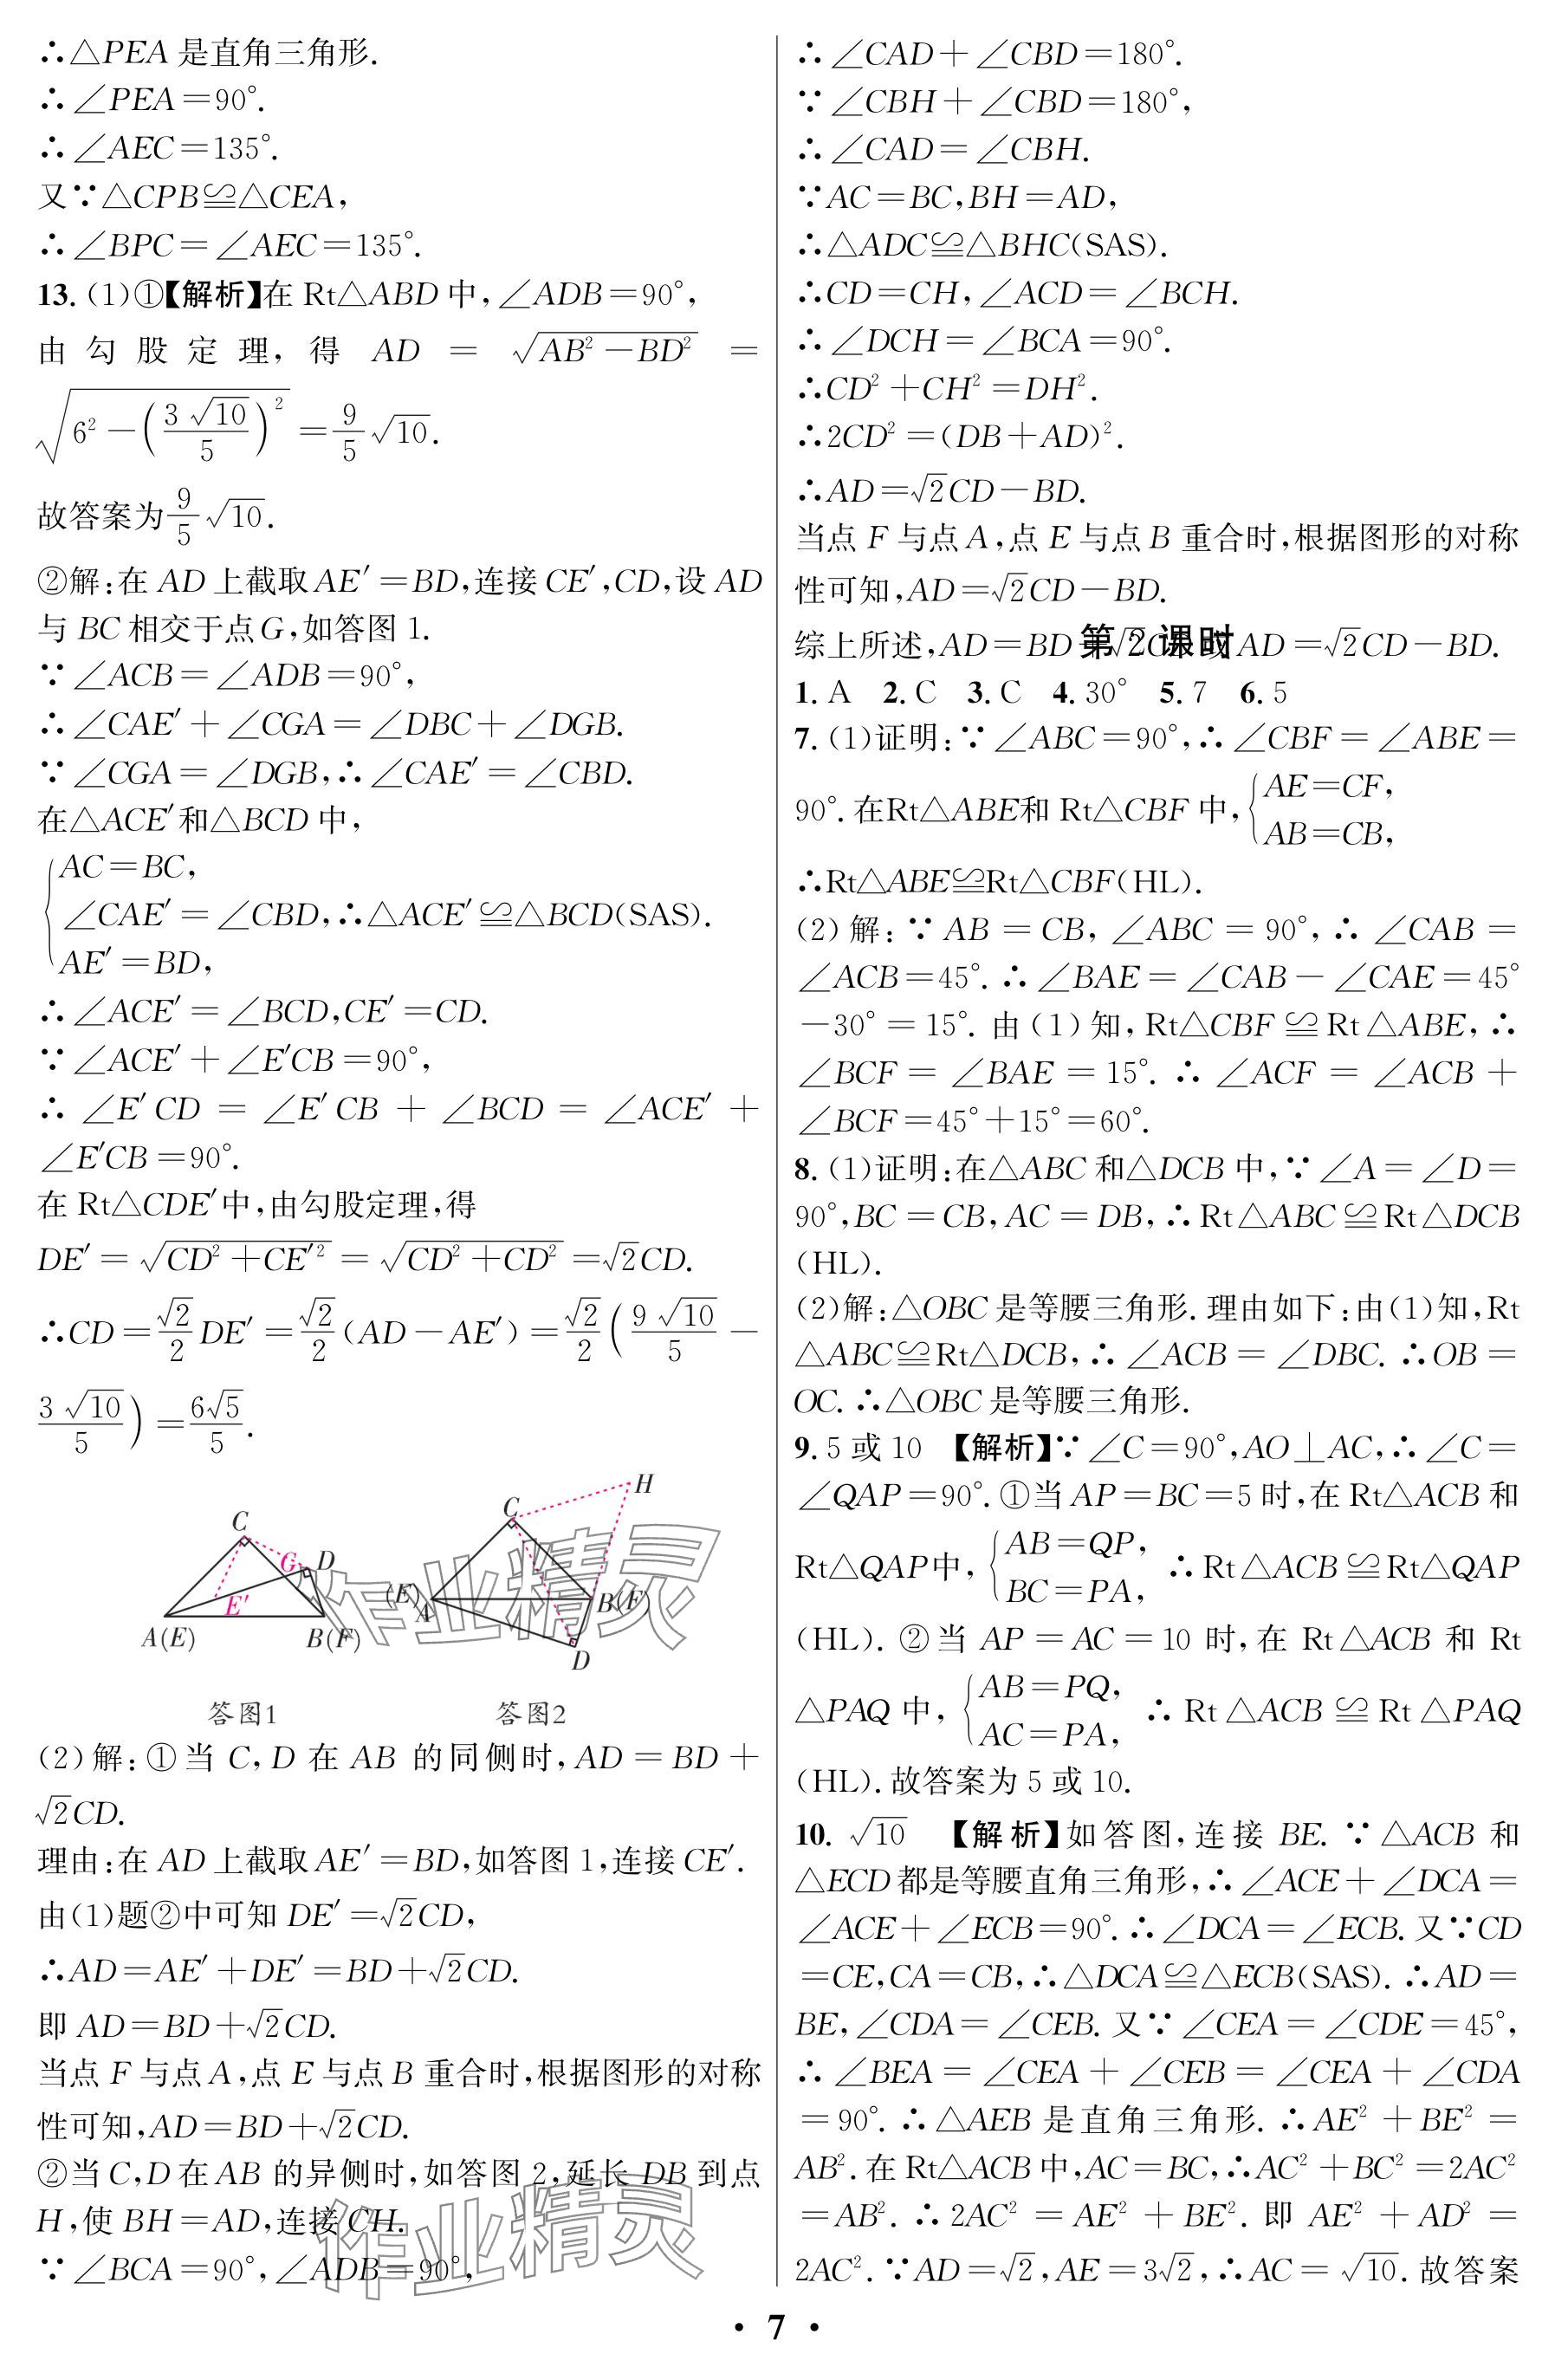 ∴△PEA 是直角三角形.
∴∠PEA=90°.
∴∠AEC=135°.
又∵△CPB≌△CEA,
∴∠BPC=∠AEC=135°.
13. (1)①【解析】在 Rt△ABD 中,∠ADB=90°,
由勾股定理,得 AD = √(AB²-BD²) =
√(6²-(3√10/5)²) = 9/5 √10.
故答案为 9/5 √10.
②解:在 AD 上截取 AE′=BD,连接 CE′,CD,设 AD
与 BC 相交于点 G,如答图 1.
∵∠ACB=∠ADB=90°,
∴∠CAE′+∠CGA=∠DBC+∠DGB.
∵∠CGA=∠DGB,∴∠CAE′=∠CBD.
在△ACE′和△BCD 中,
AC=BC,
∠CAE′=∠CBD,∴△ACE′≌△BCD(SAS).
AE′=BD,
∴∠ACE′=∠BCD,CE′=CD.
∵∠ACE′+∠E′CB=90°,
∴∠E′CD = ∠E′CB + ∠BCD = ∠ACE′ +
∠E′CB=90°.
在 Rt△CDE′中,由勾股定理,得
DE′=√(CD²+CE′²)=√(CD²+CD²)=√2CD.
∴CD=√2/2 DE′=√2/2 (AD-AE′)=√2/2 (9√10/5 -
3√10/5)=6√5/5.
C
G
D
E′
A(E)
B(F)
答图1
H
C
(E)
A
B(F)
D
答图2
(2)解:①当 C,D 在 AB 的同侧时,AD=BD+
√2CD.
理由:在 AD 上截取 AE′=BD,如答图 1,连接 CE′.
由(1)题②中可知 DE′=√2CD,
∴AD=AE′+DE′=BD+√2CD.
即 AD=BD+√2CD.
当点 F 与点 A,点 E 与点 B 重合时,根据图形的对称
性可知,AD=BD+√2CD.
②当 C,D 在 AB 的异侧时,如答图 2,延长 DB 到点
H,使 BH=AD,连接 CH.
∵∠BCA=90°,∠ADB=90°,
∴∠CAD+∠CBD=180°.
∵∠CBH+∠CBD=180°,
∴∠CAD=∠CBH.
∵AC=BC,BH=AD,
∴△ADC≌△BHC(SAS).
∴CD=CH,∠ACD=∠BCH.
∴∠DCH=∠BCA=90°.
∴CD²+CH²=DH².
∴2CD²=(DB+AD)².
∴AD=√2CD-BD.
当点 F 与点 A,点 E 与点 B 重合时,根据图形的对称
性可知,AD=√2CD-BD.
综上所述,AD=BD+√2CD或AD=√2CD-BD.
第 2 课时
1. A 2. C 3. C 4. 30° 5. 7 6. 5
7. (1)证明:∵∠ABC=90°,∴∠CBF=∠ABE=
90°. 在Rt△ABE和 Rt△CBF 中,{AE=CF,
AB=CB,
∴Rt△ABE≌Rt△CBF(HL).
(2)解:∵AB=CB,∠ABC=90°,∴∠CAB=
∠ACB=45°. ∴∠BAE=∠CAB-∠CAE=45°
-30°=15°. 由(1)知,Rt△CBF≌Rt△ABE,∴
∠BCF=∠BAE=15°. ∴∠ACF=∠ACB+
∠BCF=45°+15°=60°.
8. (1)证明:在△ABC 和△DCB 中,∵∠A=∠D=
90°,BC=CB,AC=DB,∴Rt△ABC≌Rt△DCB
(HL).
(2)解:△OBC 是等腰三角形. 理由如下:由(1)知,Rt
△ABC≌Rt△DCB,∴∠ACB=∠DBC. ∴OB=
OC. ∴△OBC 是等腰三角形.
9. 5 或 10 【解析】∵∠C=90°,AO⊥AC,∴∠C=
∠QAP=90°. ①当 AP=BC=5 时,在 Rt△ACB 和
Rt△QAP中,{AB=QP,
BC=PA, ∴Rt△ACB≌Rt△QAP
(HL). ②当 AP=AC=10 时,在 Rt△ACB 和 Rt
△PAQ 中,{AB=PQ,
AC=PA, ∴Rt△ACB≌Rt△PAQ
(HL). 故答案为 5 或 10.
10. √10 【解析】如答图,连接 BE. ∵△ACB 和
△ECD 都是等腰直角三角形,∴∠ACE+∠DCA=
∠ACE+∠ECB=90°. ∴∠DCA=∠ECB. 又∵CD
=CE,CA=CB,∴△DCA≌△ECB(SAS). ∴AD=
BE,∠CDA=∠CEB. 又∵∠CEA=∠CDE=45°,
∴∠BEA=∠CEA+∠CEB=∠CEA+∠CDA
=90°. ∴△AEB 是直角三角形. ∴AE²+BE²=
AB². 在 Rt△ACB 中,AC=BC,∴AC²+BC²=2AC²
=AB². ∴2AC²=AE²+BE². 即 AE²+AD²=
2AC². ∵AD=√2,AE=3√2,∴AC=√10. 故答案
作业精灵
作业精灵
· 7 ·